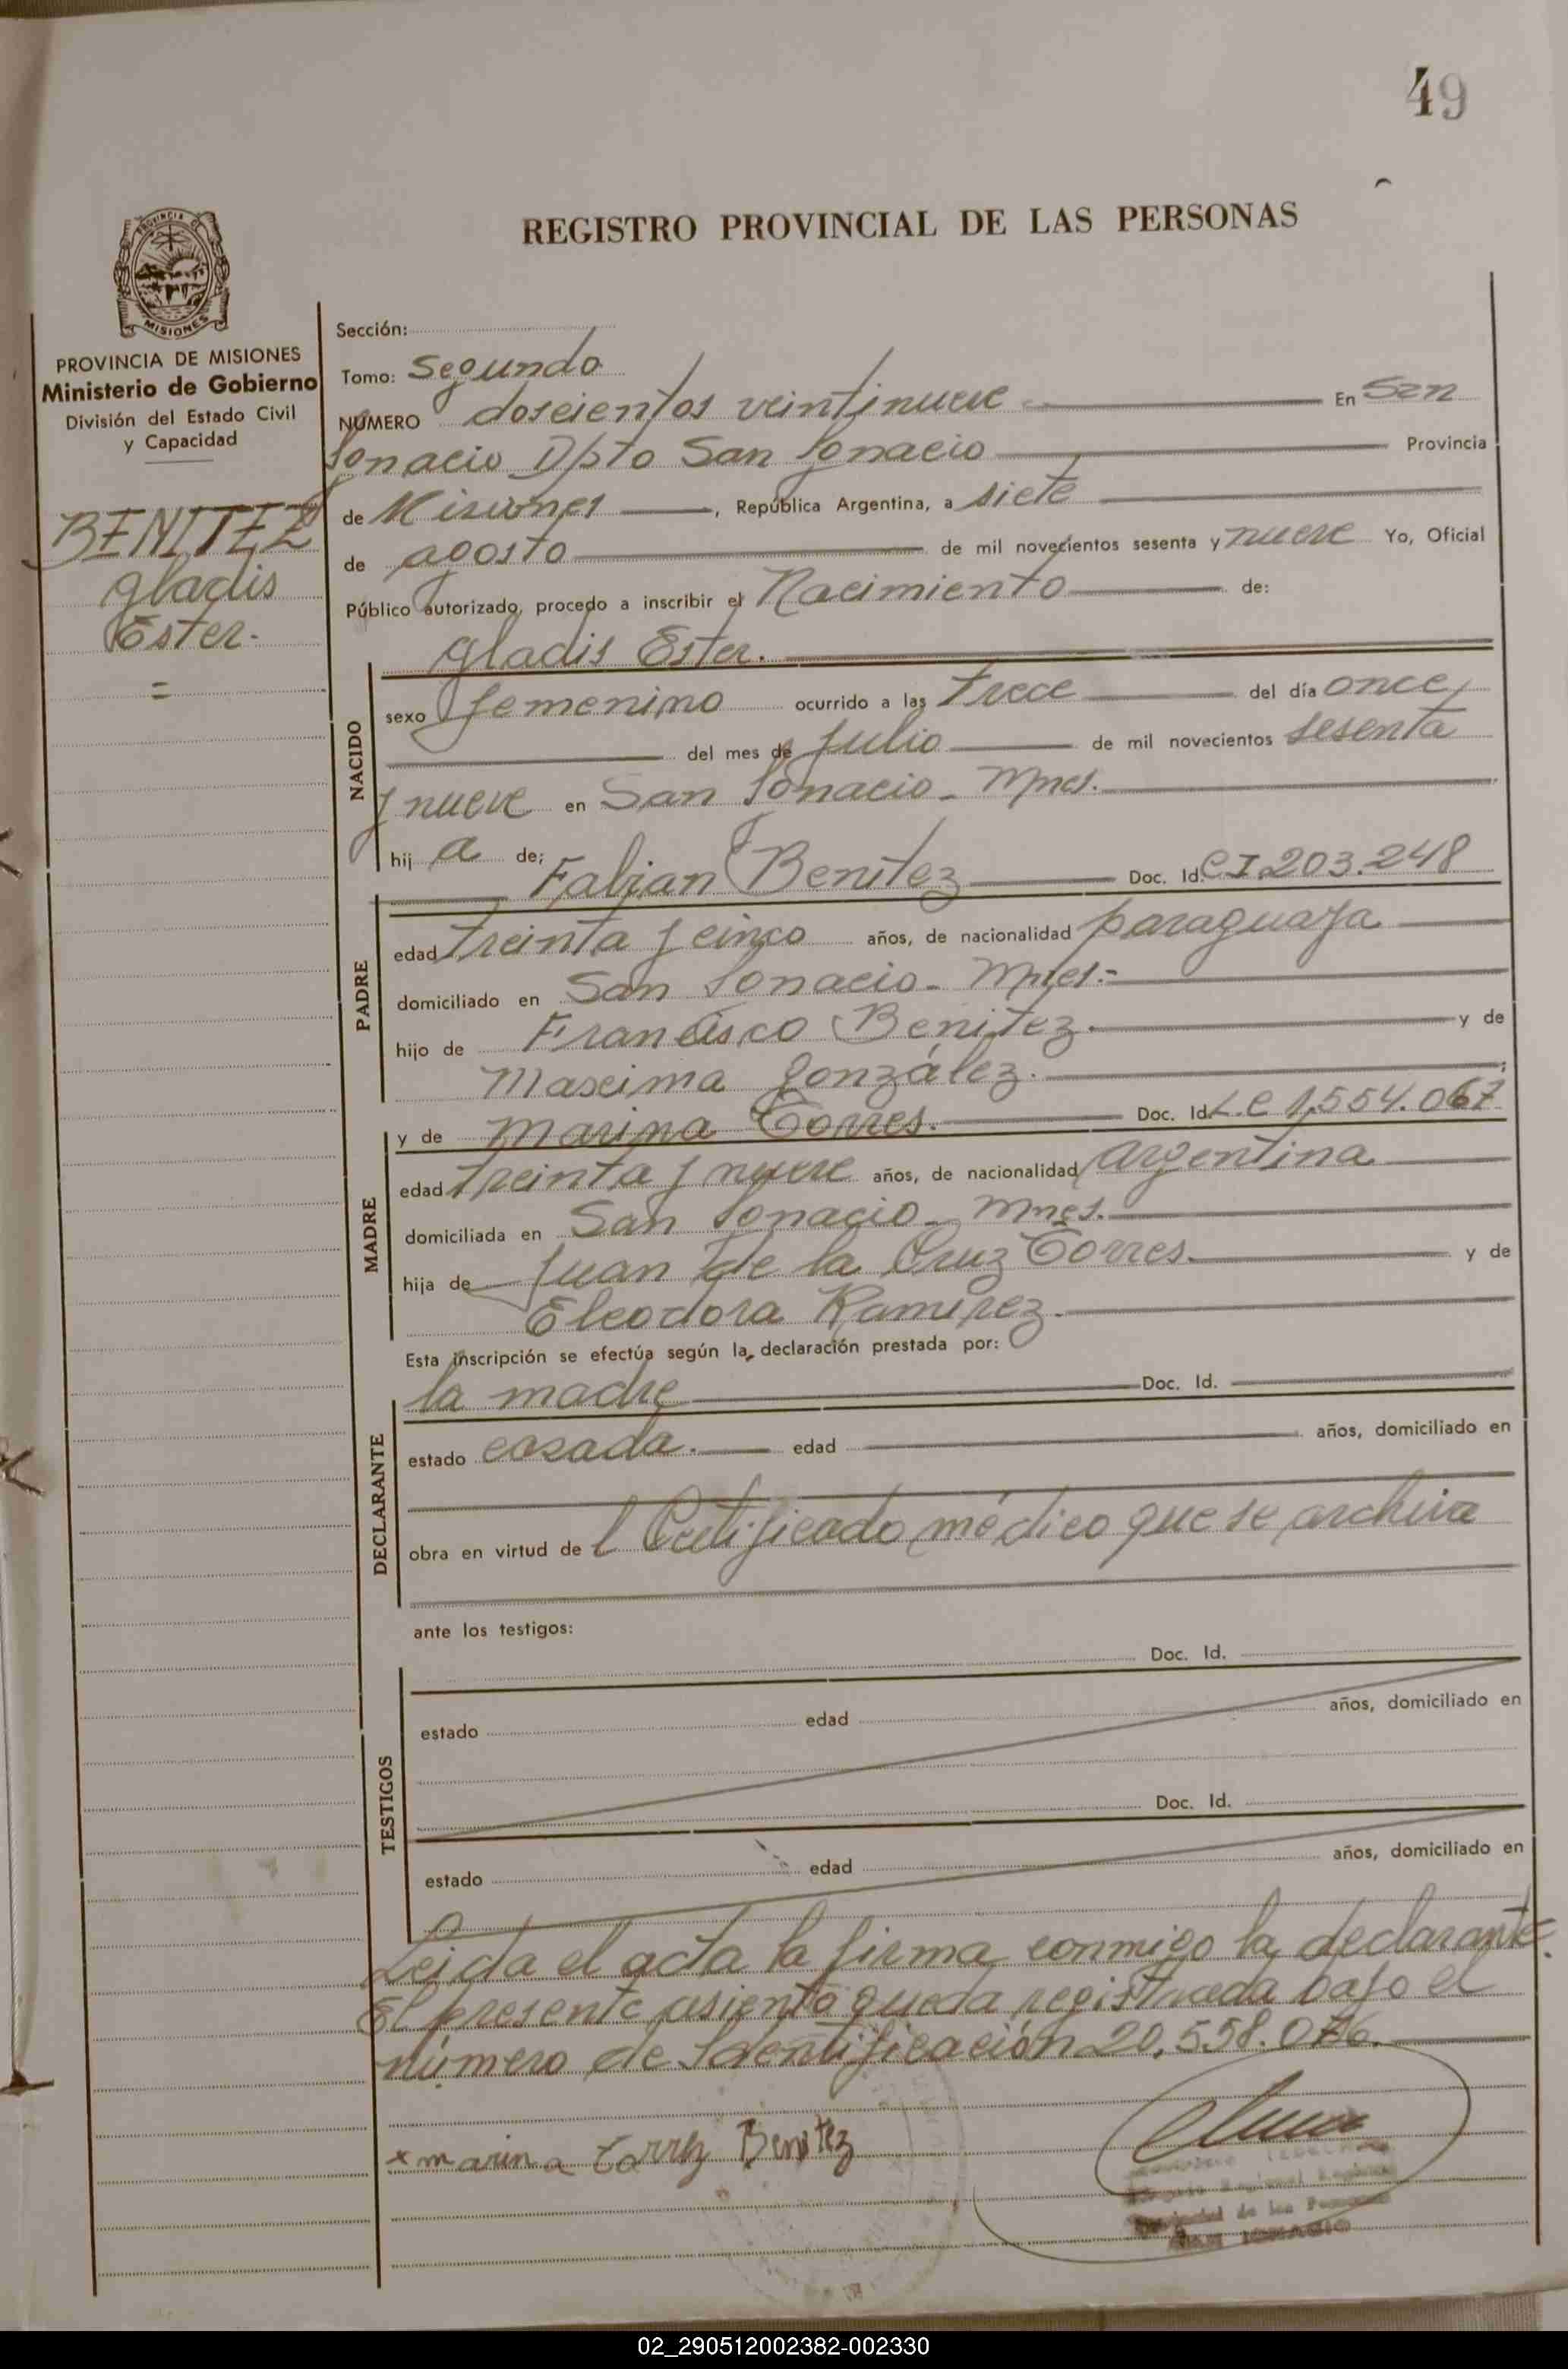 49
REGISTRO PROVINCIAL DE LAS PERSONAS
PROVINCIA DE MISIONES
Ministerio de Gobierno
División del Estado Civil
y Capacidad
BENITEZ
Gladis
Ester.
=
Sección:
Tomo: Segundo
NÚMERO doscientos veintinueve En San
Ignacio Dpto San Ignacio Provincia
de Misiones, República Argentina, a siete
de agosto de mil novecientos sesenta y nueve Yo, Oficial
Público autorizado, procedo a inscribir el Nacimiento de:
Gladis Ester.
NACIDO
sexo femenino ocurrido a las trece del día once
del mes de Julio de mil novecientos sesenta
y nueve en San Ignacio - Mnes.
hij a de;
Fabian Benitez Doc. Id. C I. 203.248
PADRE
edad treinta y cinco años, de nacionalidad paraguaya
domiciliado en San Ignacio - Mnes.-
hijo de Francisco Benitez. y de
Maxima González.
y de Marina Torres. Doc. Id. L.C 1,554.067
MADRE
edad treinta y nueve años, de nacionalidad Argentina
domiciliada en San Ignacio - Mnes.
hija de Juan de la Cruz Torres. y de
Eleodora Ramirez.
Esta inscripción se efectúa según la declaración prestada por:
la madre Doc. Id.
DECLARANTE
estado casada. edad años, domiciliado en
obra en virtud de l Certificado médico que se archiva
ante los testigos:
Doc. Id.
TESTIGOS
estado edad años, domiciliado en
Doc. Id.
estado edad años, domiciliado en
Leida el acta la firma conmigo la declarante.
El presente asiento queda registrada bajo el
número de Identificación 20.558.076.
x marina torrez Benitez
SAN IGNACIO
02_290512002382-002330